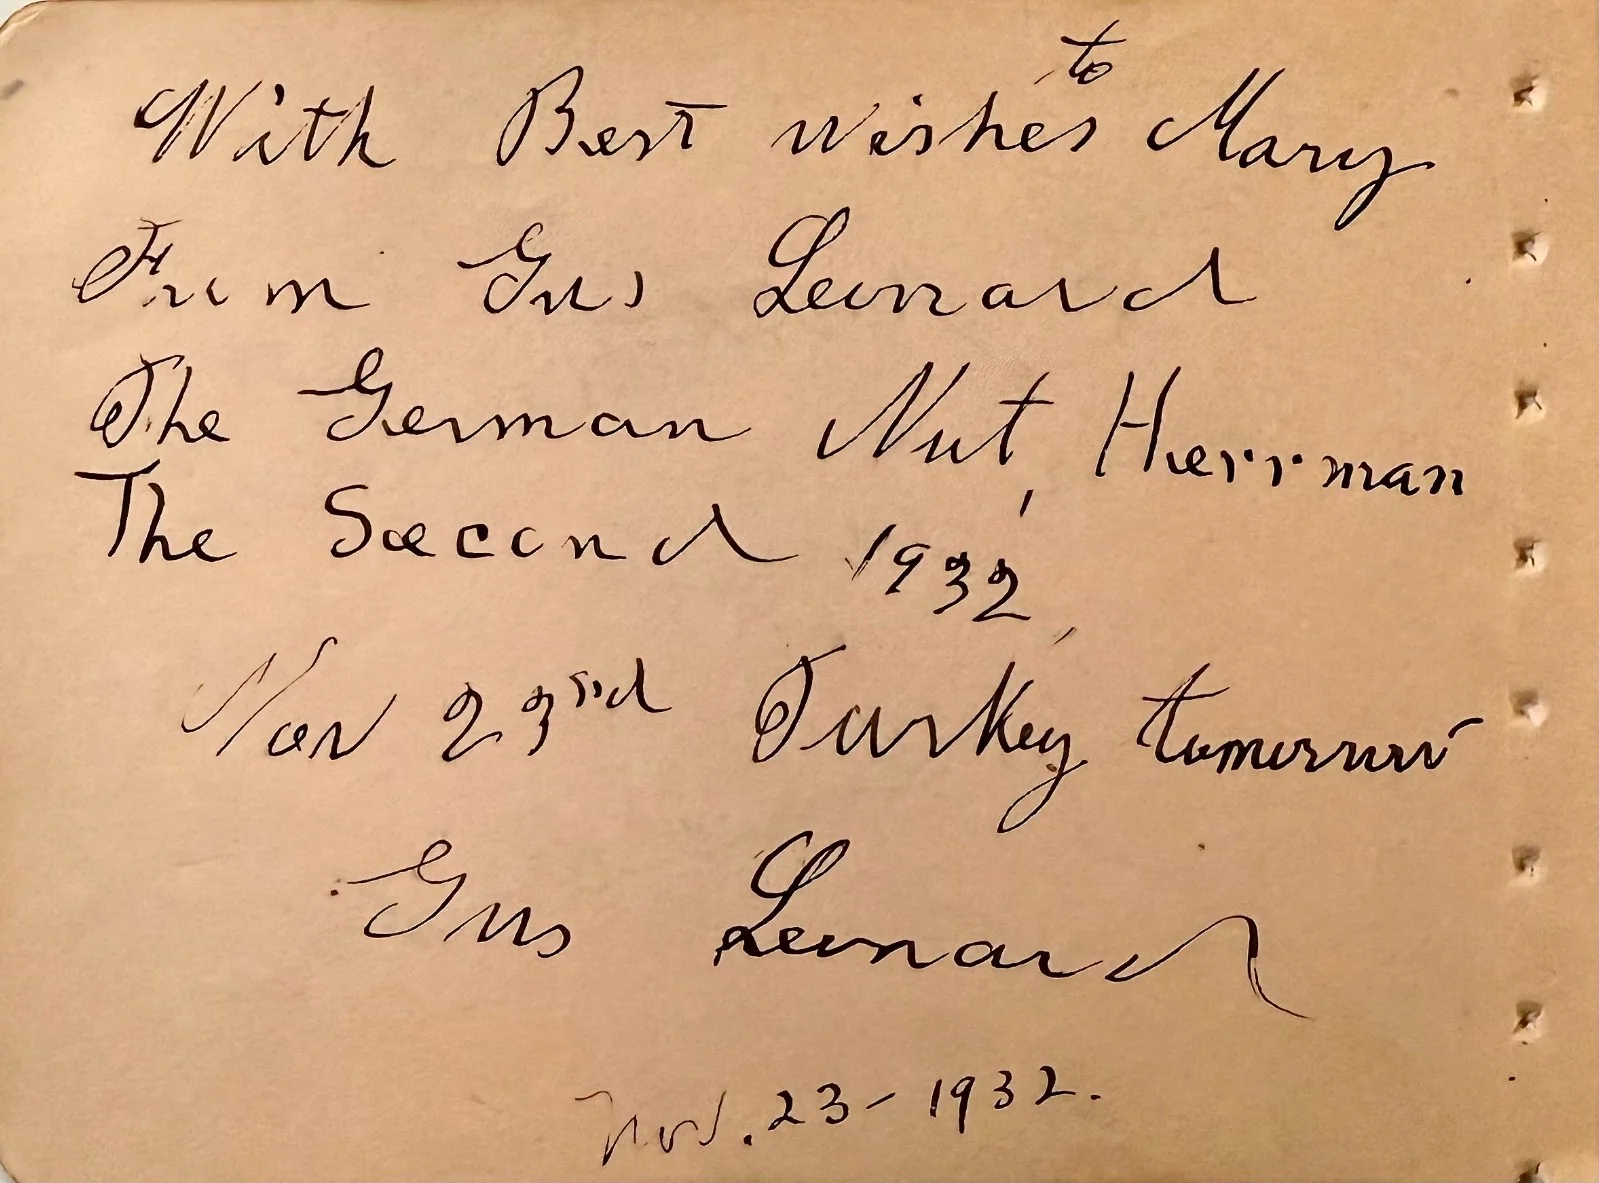 With Best wishes to Mary
From Gus Leonard
The German Nut, Herrman
The Second 1932,
Nov 23rd Turkey tomorrow
Gus Leonard
Nov. 23 - 1932.